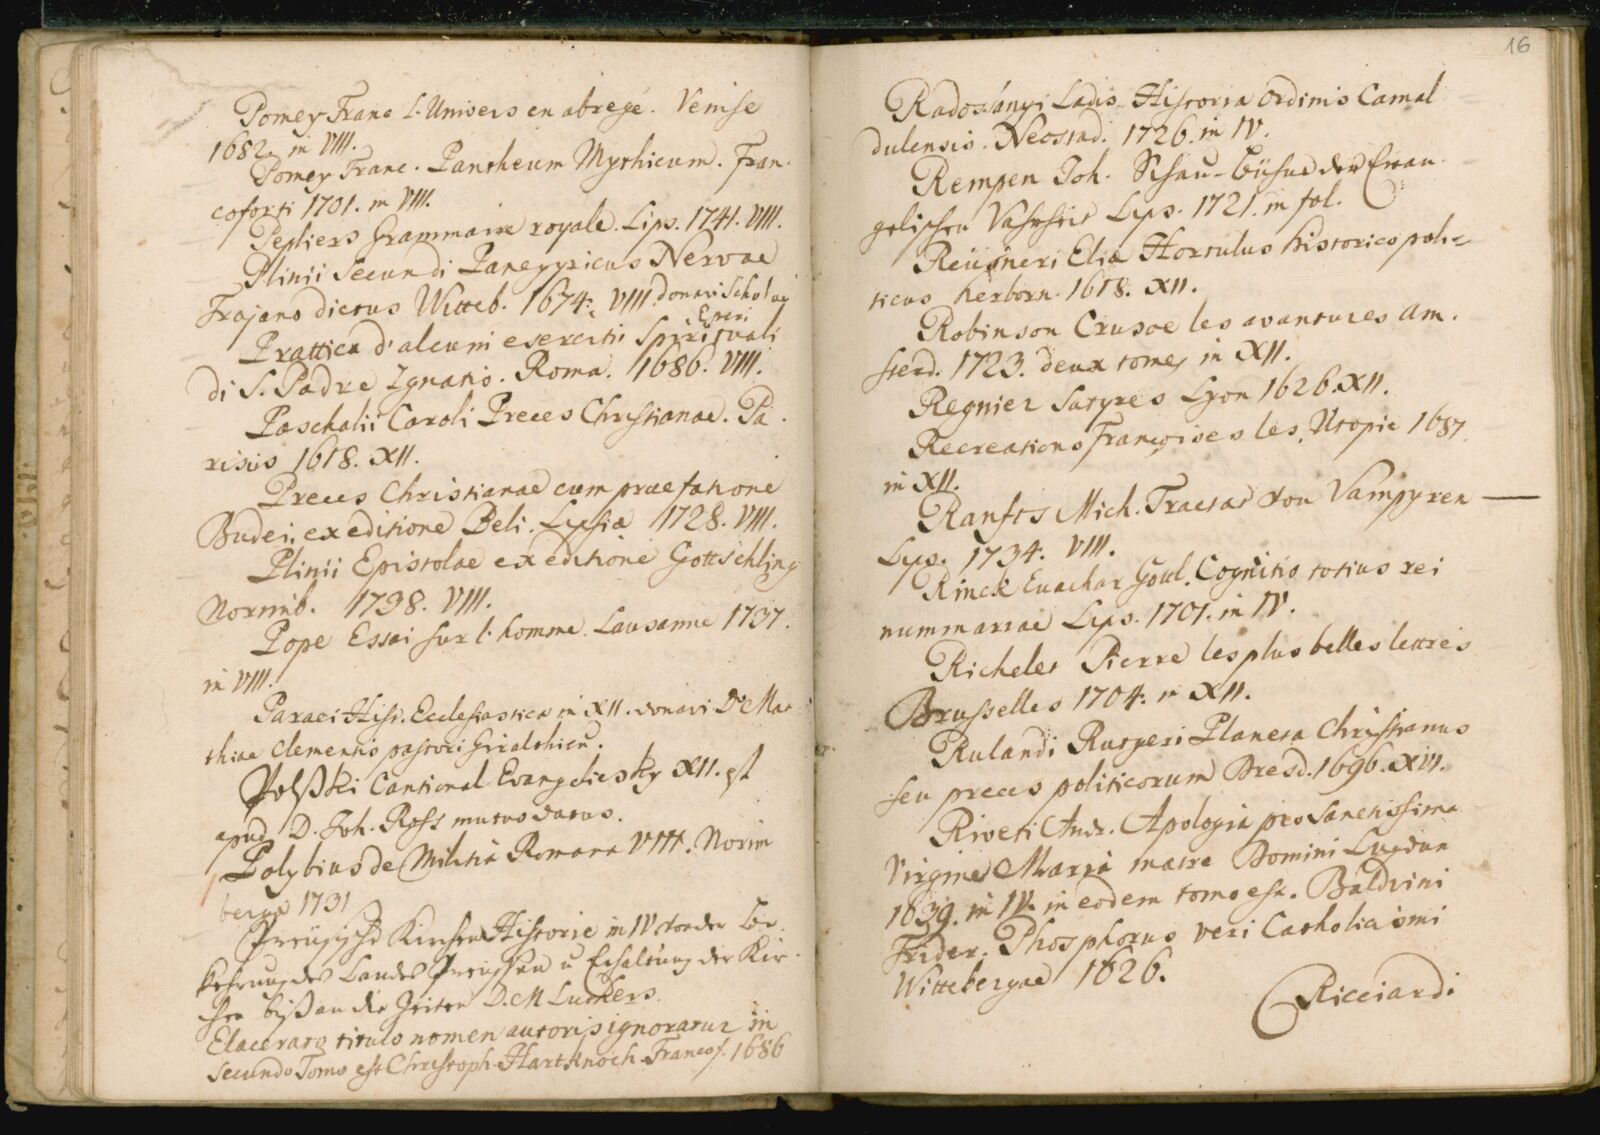 Pomey Franc L'Univers en abregé. Venise
1682. in VIII.
Pomey Franc. Pantheum Mythicum. Fran.
coforti 1701. in VIII.
Pepliers Grammaire royale. Lips. 1741. VIII.
Plinii Secundi Panegyricus Nervae
Trajano dictus Witteb. 1674. VIII donavi Scholae
Eperi
Prattica d'alcuni esercitii Spirituali
di S. Padre Ignatio. Roma. 1686. VIII.
Paschalii Caroli Preces Christianae. Pa.
risiis 1618. XII.
Preces Christianae cum praefatione
Budei, ex editione Beli. Lipsiae 1728. VIII.
Plinii Epistolae ex editione Gottschling
Norimb. 1738. VIII.
Pope Essai sur l'homme. Lausanne 1737.
in VIII.
Paraei Hist. Ecclesiastica in XII. donavi D. Mat
thiae Clementis pastori Giraltkien.
Polßki Cantional Evangelicsky XII. est
apud D. Joh. Ross mutuo datus.
Polybius de Militia Romana VIII. Norim
berga 1731
Preüsische Kirchen Historie in IV von der Be
kehrung des Landes Preussen u Erhaltung der Kir
chen biß an die Zeiten D. M Luthers.
E lacerato titulo nomen autoris ignoratur in
secundo Tomo est Christoph. Hartknoch. Francof. 1686
16
Radosányi Ladis. Historia Ordinis Camal
dulensis. Neostad. 1726. in IV.
Rempen Joh. Schau-bühne der Evan
gelischen Wahrheit Lips. 1721. in fol.
Reüsneri Elia Hortulus historico poli=
ticus herborn. 1618. XII.
Robinson Crusoe les avantures Am.
sterd. 1723. deux tomes in XII.
Regnier Satyres Lyon 1626. XII.
Recreations Françoises les, Utopie 1681.
in XII.
Ranfts Mich. Tractat von Vampyren —
Lips. 1734. VIII.
Rinck Euachar Gottl. Cognitio totius rei
nummariae Lips. 1701. in IV.
Richelet Pierre les plus belles lettres
Brusselles 1704. in XII.
Rulandi Rutgeri Planeta Christianus
seu preces politicorum Dresd. 1696. XVI.
Riveti And. Apologia pro Sanctissima
Virgine Maria matre Domini Lugdun
1639. in IV. in eodem tomo est. Balduini
Frider. Phosphorus veri Catholicismi
Wittebergae 1626.
Ricciardi